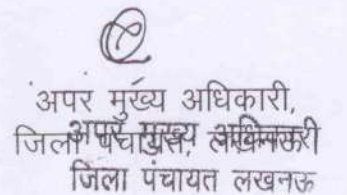 अपर मुख्य अधिकारी,
जिला पंचायत, लखनऊ
अपर मुख्य अधिकारी
जिला पंचायत लखनऊ